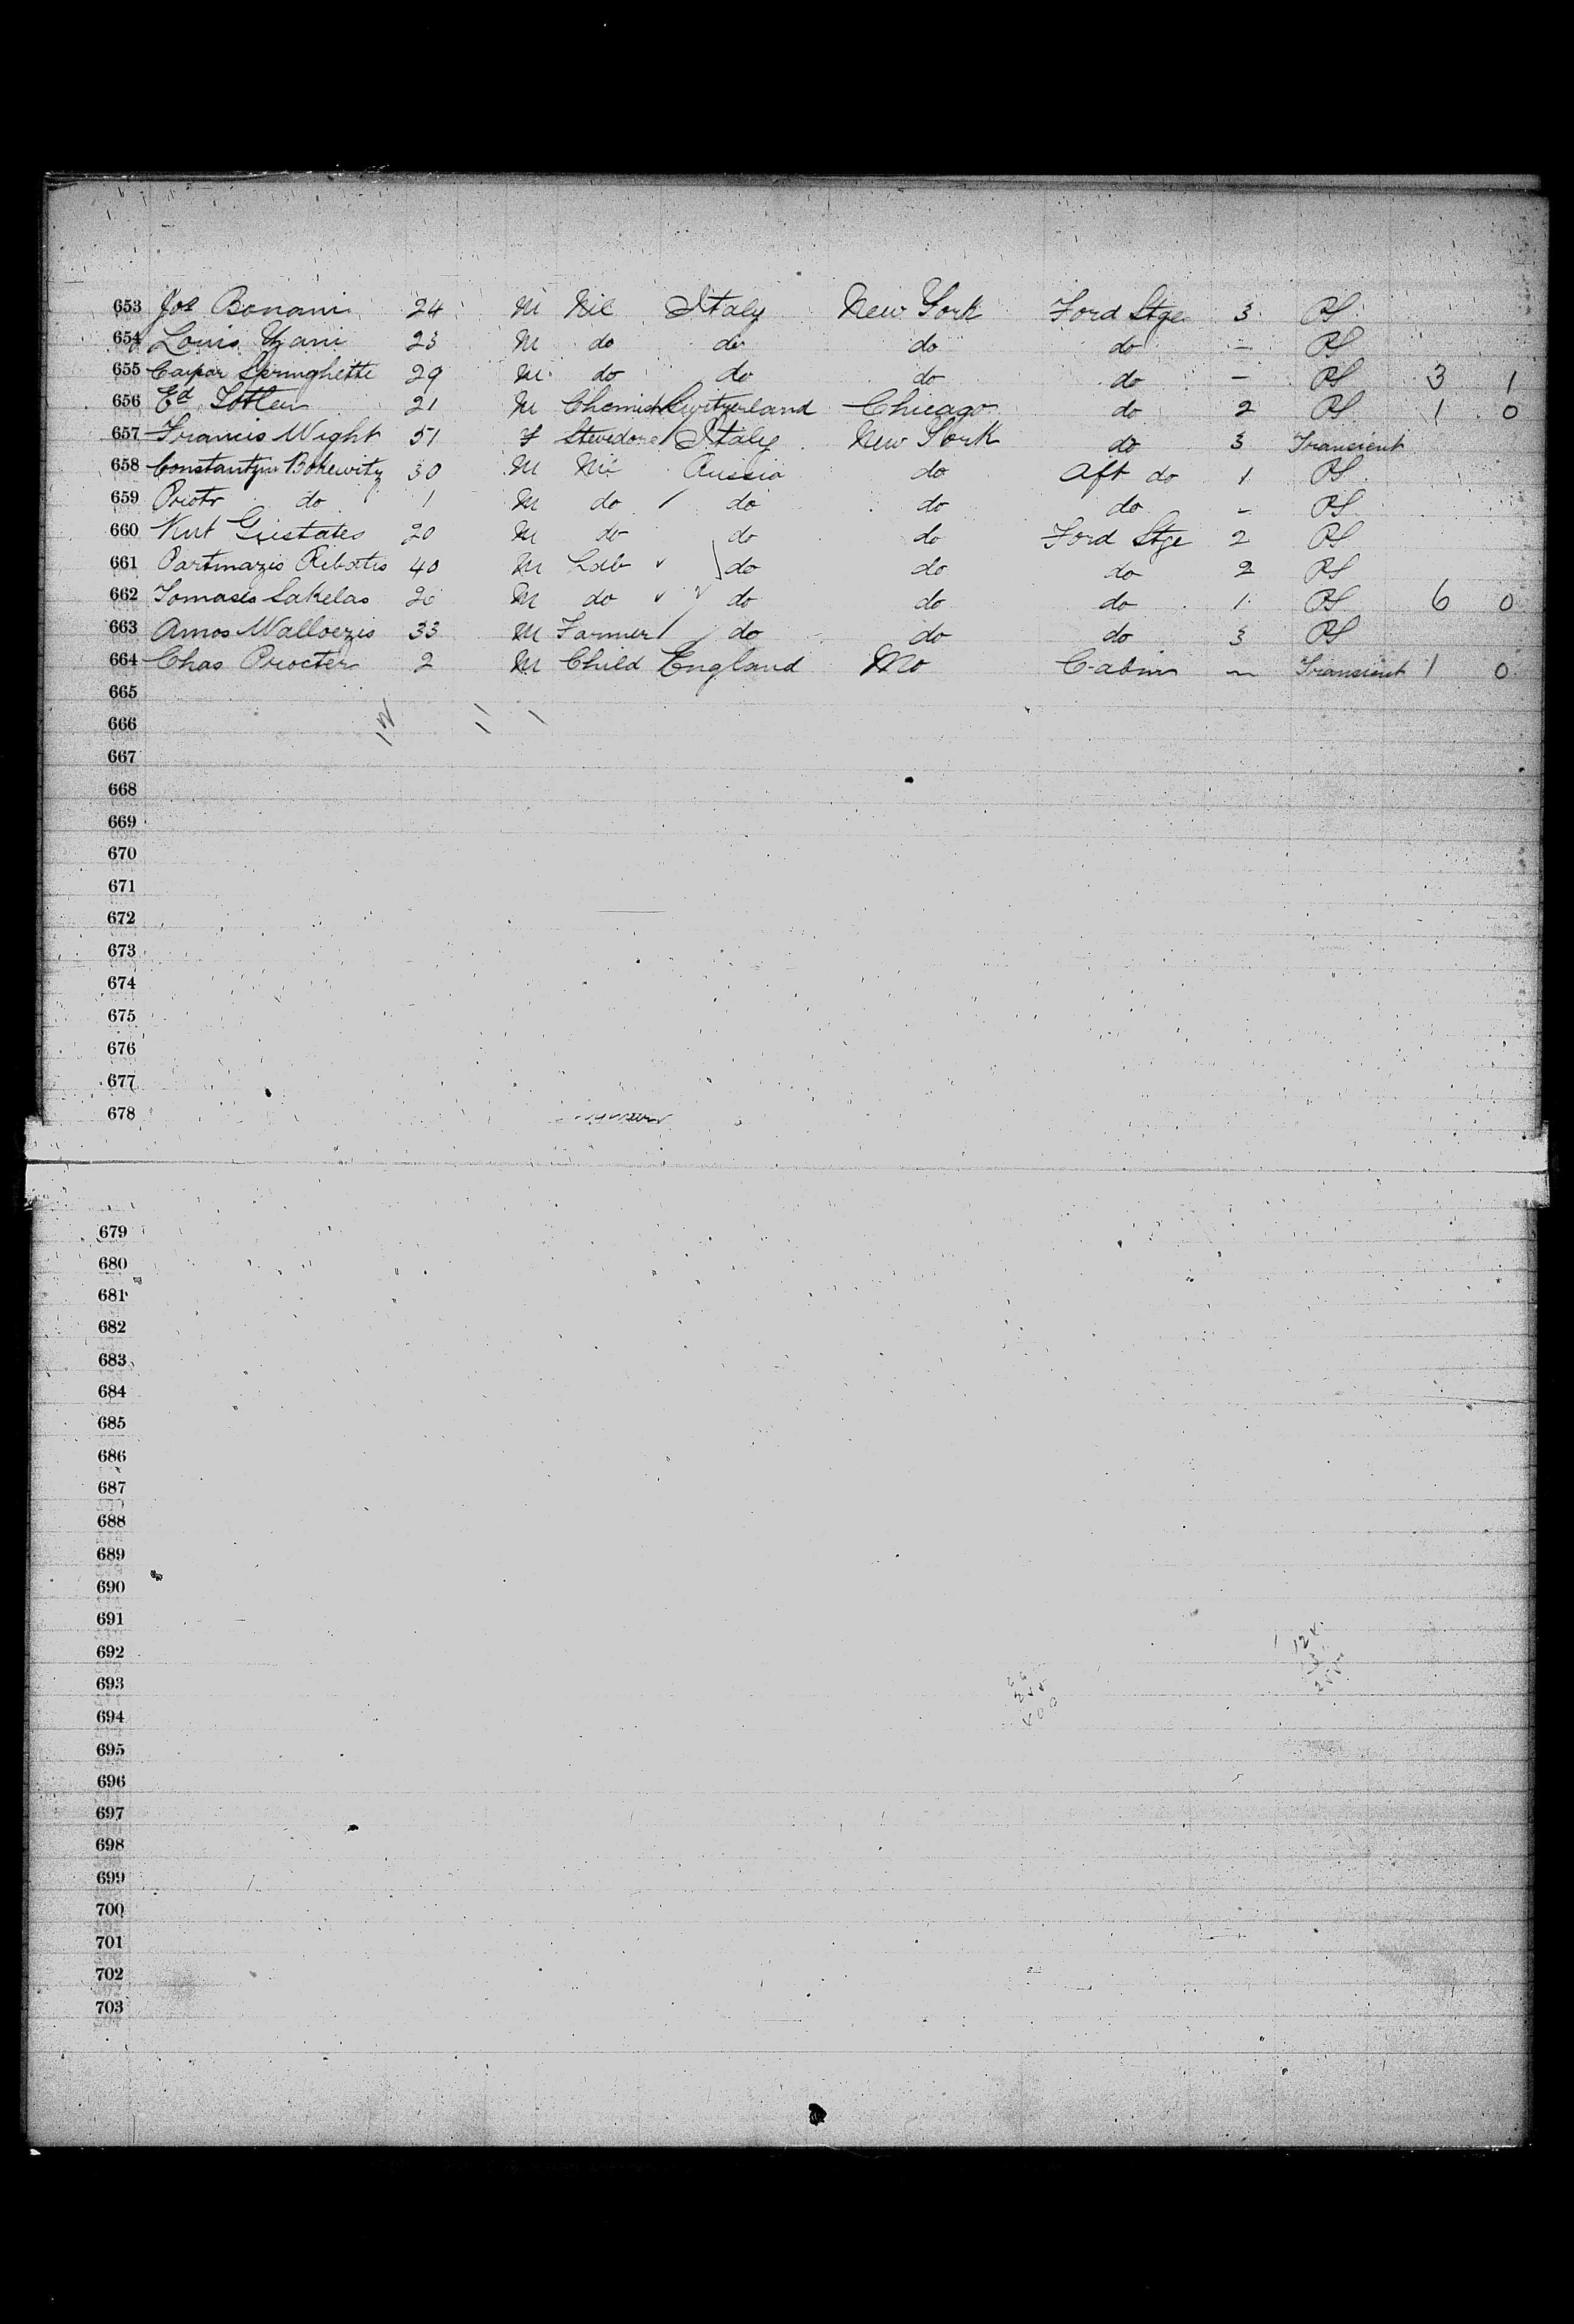 653 Jos Bonani 24 M Nil Italy New York Ford Stge 3 PS
654 Louis Uzani 23 M do do do do - PS
655 Caspar Springhette 29 M do do do do - PS 3 1
656 Ed Sotten 21 M Chemist Switzerland Chicago do 2 PS 1 0
657 Francis Wight 51 f Stevedore Italy New York do 3 Transient
658 Constantzin Bokewitz 30 M Nil Russia do Aft do 1 PS
659 Piotr do 1 M do do do do - PS
660 Kut Gustates 20 M do do do Ford Stge 2 PS
661 Partmazis Ribatis 40 M Lab do do do 2 PS
662 Tomasis Sakelas 20 M do do do do 1 PS 6 0
663 Amos Walloezis 33 M Farmer do do do 3 PS
664 Chas Procter 2 M Child England Mo Cabin - Transient 1 0
665
666
667
668
669
670
671
672
673
674
675
676
677
678
679
680
681
682
683
684
685
686
687
688
689
690
691
692
693
694
695
696
697
698
699
700
701
702
703